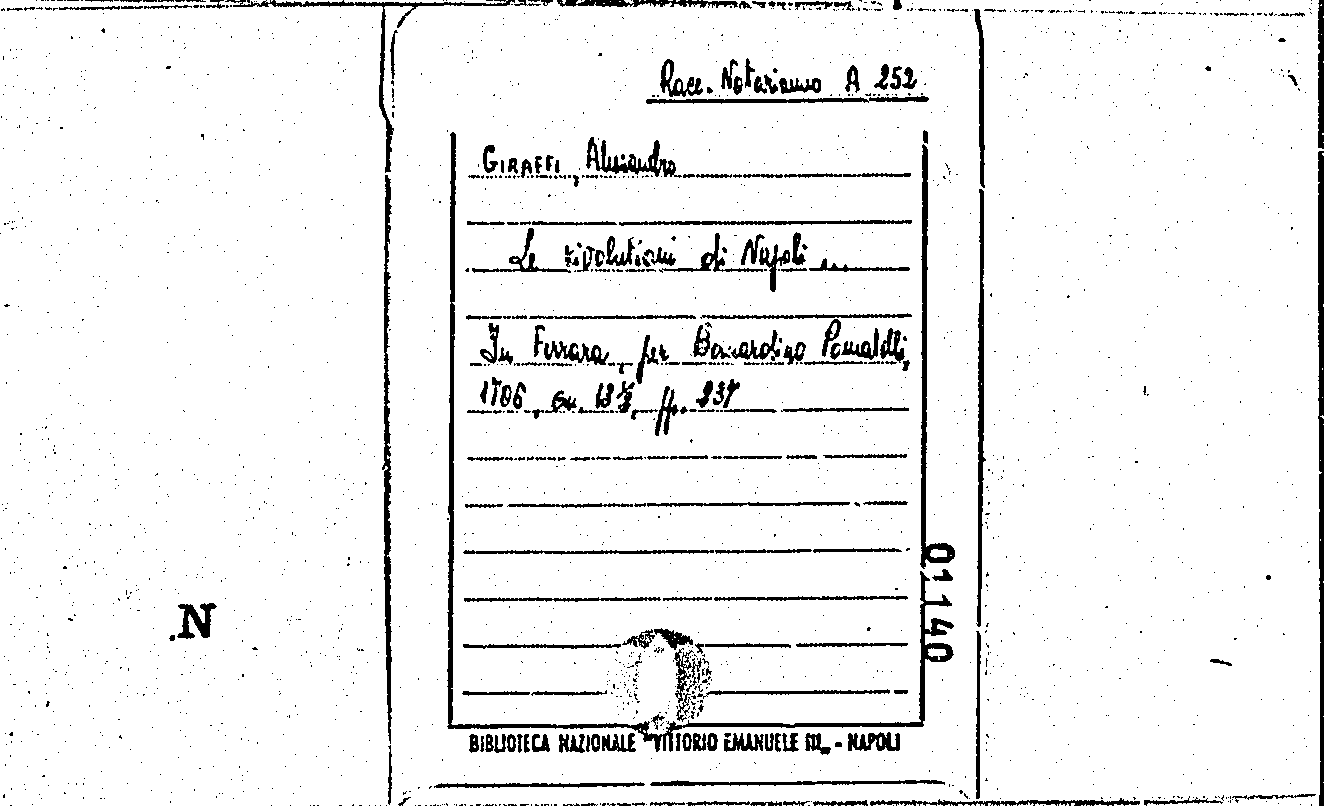 Racc. Notarianno A 252
GIRAFFI, Alessandro
Le rivolutioni di Napoli ...
In Ferrara, per Bernardino Pomatelli,
1706, cm. 13½, pp. 237
01140
N
BIBLIOTECA NAZIONALE "VITTORIO EMANUELE III„ - NAPOLI